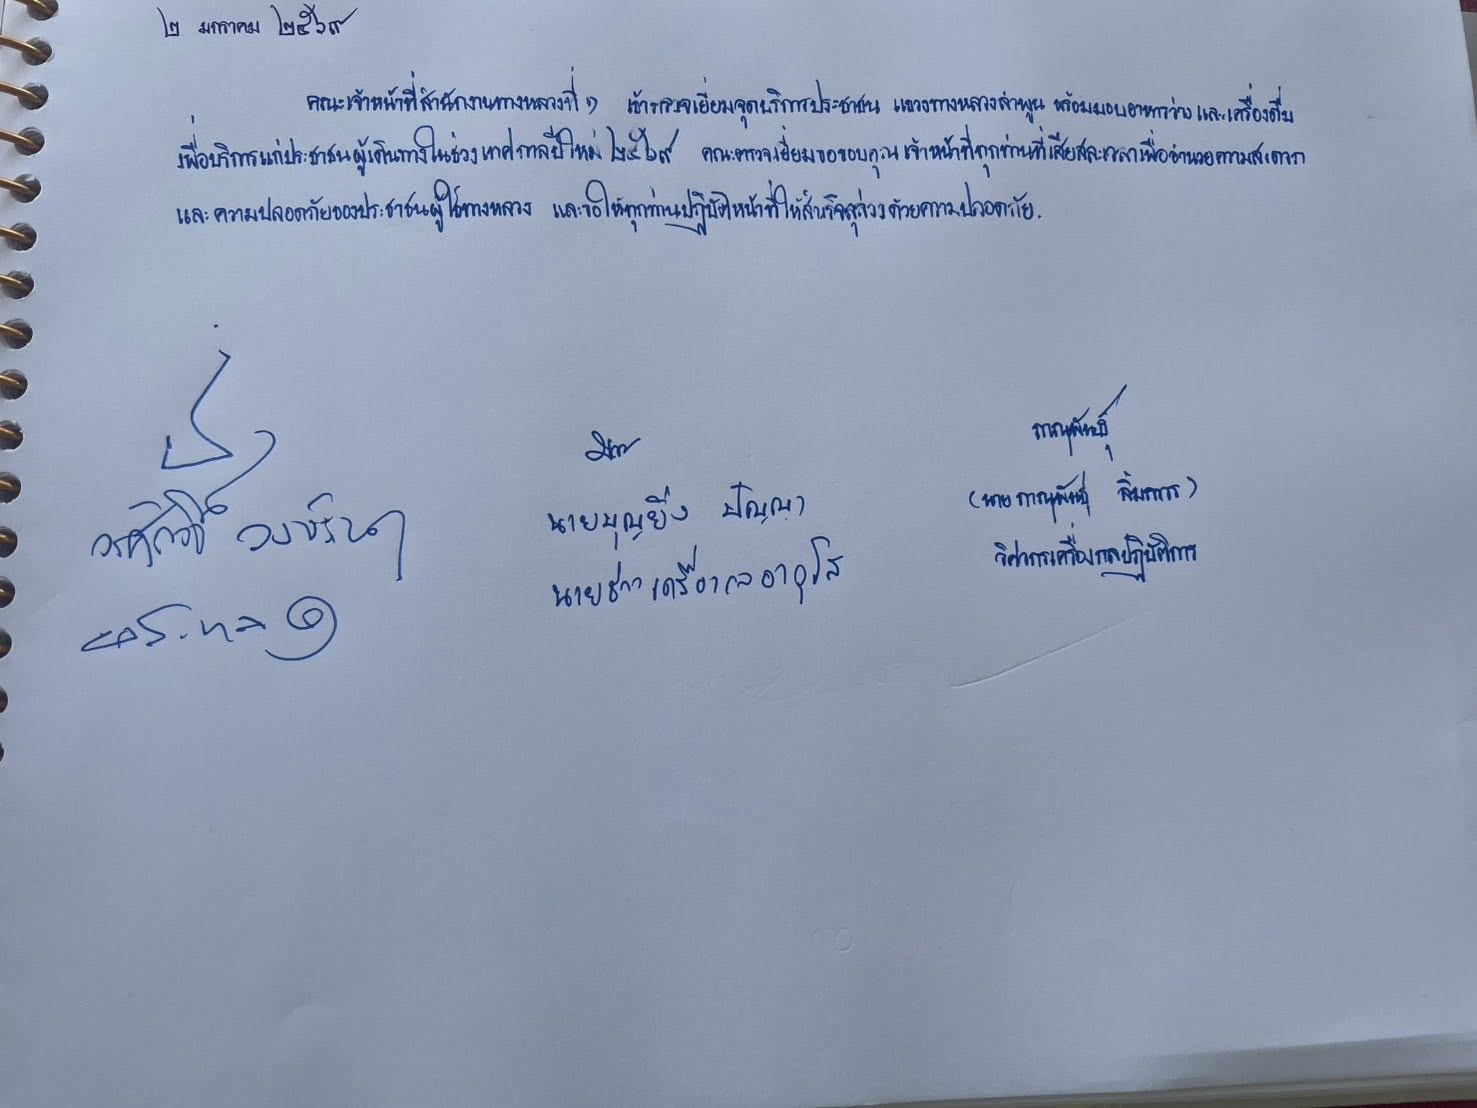 ๒ มกราคม ๒๕๖๙
คณะเจ้าหน้าที่สำนักงานทางหลวงที่ ๑ เข้าตรวจเยี่ยมจุดบริการประชาชน แขวงทางหลวงลำพูน พร้อมมอบอาหารว่าง และเครื่องดื่ม
เพื่อบริการแก่ประชาชนผู้เดินทางในช่วงเทศกาลปีใหม่ ๒๕๖๙ คณะตรวจเยี่ยมขอขอบคุณ เจ้าหน้าที่ทุกท่านที่เสียสละเวลาเพื่ออำนวยความสะดวก
และความปลอดภัยของประชาชนผู้ใช้ทางหลวง และขอให้ทุกท่านปฏิบัติหน้าที่ให้สำเร็จลุล่วงด้วยความปลอดภัย.
ภาณุพันธุ์
(นาย ภาณุพันธุ์ ลิ้มภการ)
นายบุญยิ่ง ปัญญา
วิศวกรเครื่องกลปฏิบัติการ
นายช่างเครื่องกลอาวุโส